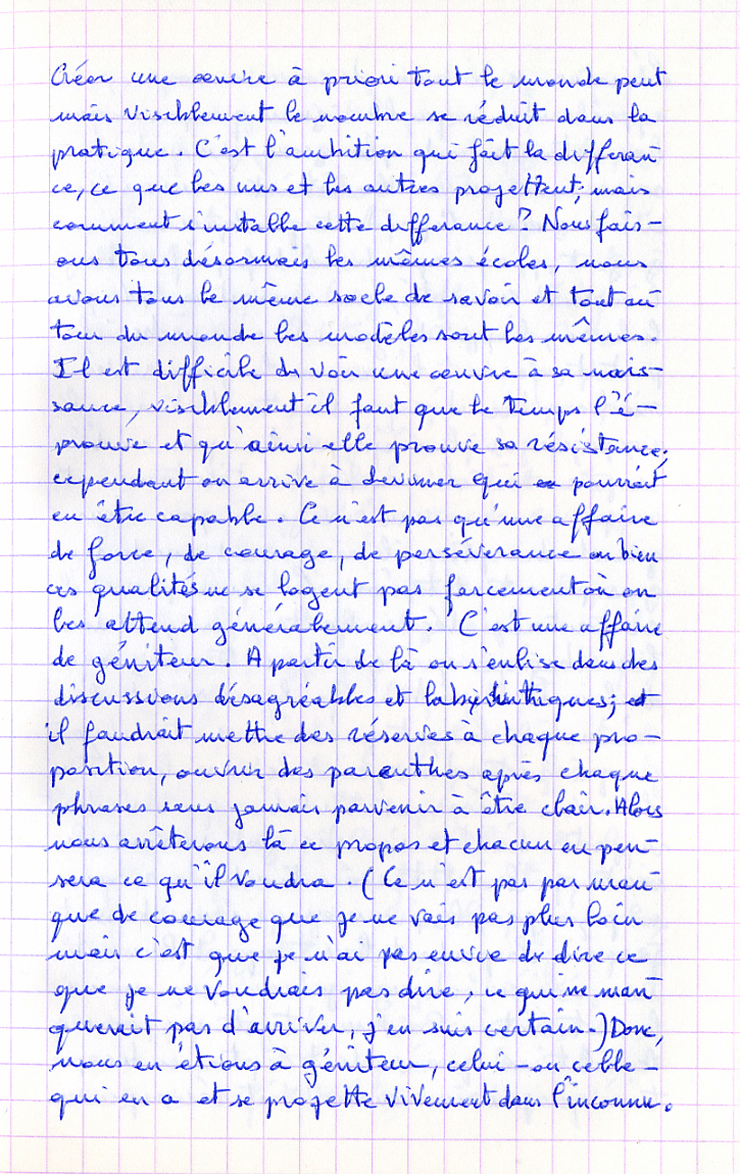 Créer une oeuvre à priori tout le monde peut
mais visiblement le nombre se réduit dans la
pratique. C'est l'ambition qui fait la differan-
ce, ce que les uns et les autres projettent; mais
comment s'installe cette differance? Nous fais-
ons tous désormais les mêmes écoles, nous
avons tous le même socle de savoir et tout au-
tour du monde les modèles sont les mêmes.
Il est difficile de voir une oeuvre à sa nais-
sance, visiblement il faut que le temps l'é-
prouve et qu'ainsi elle prouve sa résistance;
cependant on arrive à deviner qui pourrait
en être capable. Ce n'est pas qu'une affaire
de force, de courage, de persévérance ou bien
ces qualités ne se logent pas forcement où on
les attend généralement. C'est une affaire
de géniteur. A partir de là on s'enlise dans des
discussions désagréables et labyrinthiques; et
il faudrait mettre des réserves à chaque pro-
position, ouvrir des parenthes après chaque
phrases sans jamais parvenir à être clair. Alors
nous arrêterons là ce propos et chacun en pen-
sera ce qu'il voudra. (Ce n'est pas par man-
que de courage que je ne vais pas plus loin
mais c'est que je n'ai pas envie de dire ce
que je ne voudrais pas dire, ce qui ne man-
querait pas d'arriver, j'en suis certain.) Donc,
nous en étions à géniteur, celui - ou celle -
qui en a et se projette vivement dans l'inconnu.